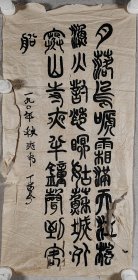 月落烏嗁霜滿天江楓
漁火對愁眠姑蘇城外
寒山寺夜半鐘聲到客
船